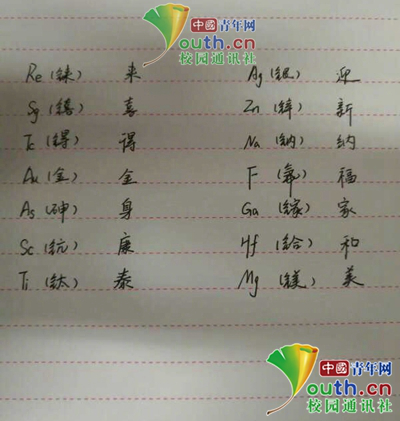 中國青年网
youth.cn
校园通讯社
Re (铼) 来 Ag (银) 迎
Sg (𬭳) 喜 Zn (锌) 新
Tc (锝) 得 Na (钠) 纳
Au (金) 全 F (氟) 福
As (砷) 身 Ga (镓) 家
Sc (钪) 康 Hf (铪) 和
Ti (钛) 泰 Mg (镁) 美
中國青年网
youth.cn
校园通讯社